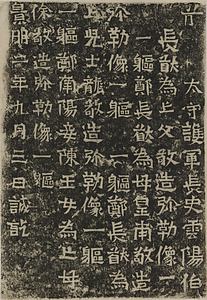 太守護軍長史雲陽伯
長猷為亡父敬造弥勒像一
一軀鄭長猷為母皇甫敬造
弥勒像一軀 一軀鄭長猷為
亡兒士龍敬造弥勒像一
一軀鄭南陽妾陳玉女為亡母
徐敬造弥勒像一軀
景明二年九月三日誠訖